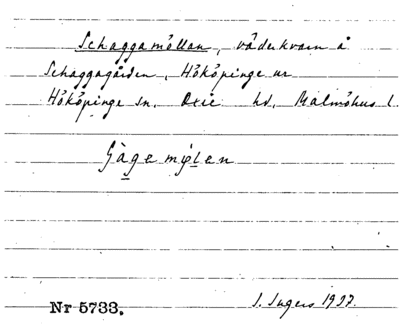 Schaggamöllan, väderkvarn å
Schaggagården, Hököpinge nr
Hököpinge sn. Oxie hd, Malmöhus l.
Nr 5733.
I. Ingers